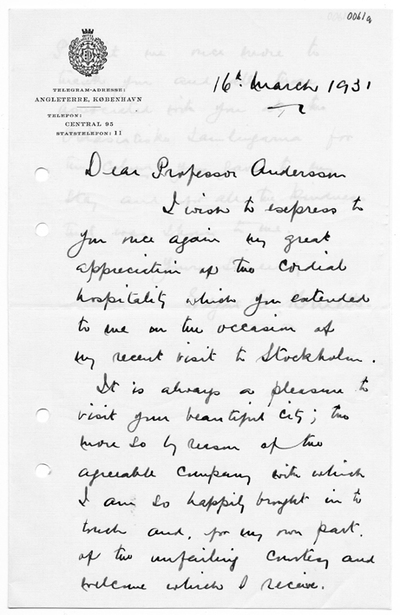 0061a
16th March 1931
TELEGRAM-ADRESSE:
ANGLETERRE, KØBENHAVN
TELEFON:
CENTRAL 95
STATSTELEFON: 11
Dear Professor Andersson
I wish to express to
you once again my great
appreciation of the cordial
hospitality which you extended
to me on the occasion of
my recent visit to Stockholm.
It is always a pleasure to
visit your beautiful city; the
more so by reason of the
agreeable company with which
I am so happily brought in to
touch and, for my own part,
of the unfailing courtesy and
welcome which I receive.